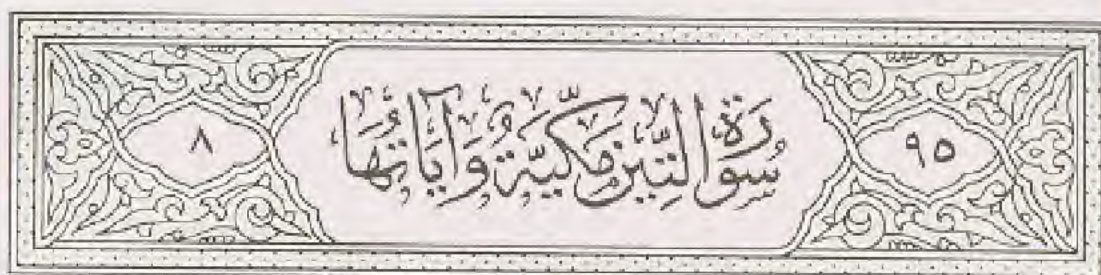 ٩٥ سُورَةُ التِّينِ مَكِّيَّةٌ وَآيَاتُهَا ٨